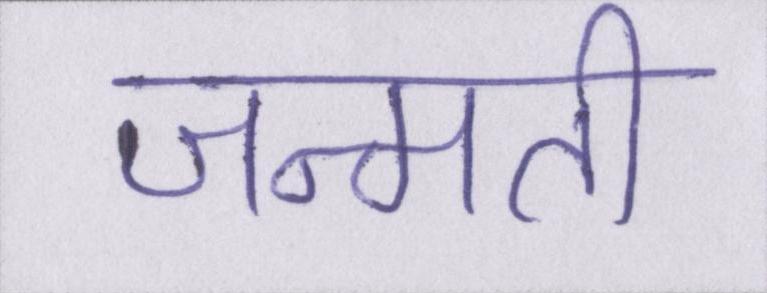 जन्मती